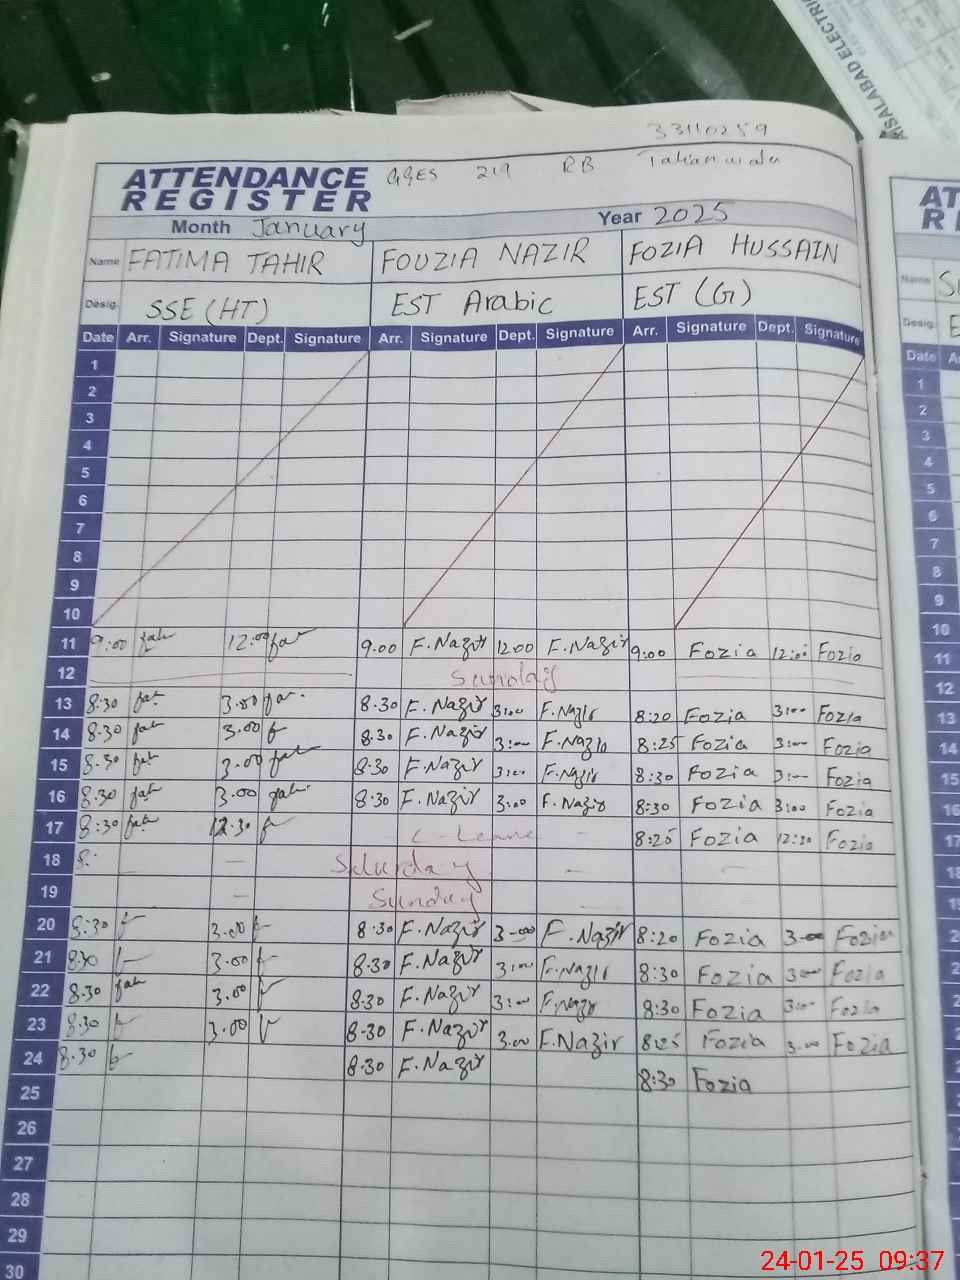 ISALABAD ELECTRIC
33110259
ATTENDANCE REGISTER GGES 219 RB
Month January Year 2025
Name FATIMA TAHIR FOUZIA NAZIR FOZIA HUSSAIN
Desig. SSE (HT) EST Arabic EST (G)
Date Arr. Signature Dept. Signature Arr. Signature Dept. Signature Arr. Signature Dept. Signature
1
2
3
4
5
6
7
8
9
10
11 9:00 fat 12:00 fat 9.00 F.Nazir 12:00 F.Nazir 9:00 Fozia 12:00 Fozia
12 Sunday
13 8:30 fat 3.00 fat. 8.30 F.Nazir 3:00 F.Nazir 8:20 Fozia 3:00 Fozia
14 8.30 fat 3.00 f 8.30 F.Nazir 3:00 F.Nazir 8:25 Fozia 3:00 Fozia
15 8.30 fat 3.00 fat 8.30 F.Nazir 3:00 F.Nazir 8:30 Fozia 3:00 Fozia
16 8.30 fat 3.00 fat. 8.30 F.Nazir 3:00 F.Nazir 8:30 Fozia 3:00 Fozia
17 8:30 fat 12.30 f C-Leave - 8:25 Fozia 12:30 Fozia
18 8. - Saturday - -
19 - Sunday
20 8:30 f 3.00 f 8.30 F.Nazir 3-00 F.Nazir 8:20 Fozia 3-00 Fozia
21 8.30 f 3.00 f 8.30 F.Nazir 3:00 F.Nazir 8:30 Fozia 3:00 Fozia
22 8.30 fat 3.00 f 8.30 F.Nazir 3:00 F.Nazir 8:30 Fozia 3:00 Fozia
23 8.30 f 3.00 f 8.30 F.Nazir 3.00 F.Nazir 8:25 Fozia 3.00 Fozia
24 8.30 f 8.30 F.Nazir 8:30 Fozia
25
26
27
28
29
30
AT
R
Name S
Desig. E
Date A
1
2
3
4
5
6
7
8
9
10
11
12
13
14
15
16
17
18
24-01-25 09:37